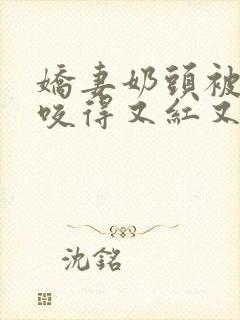 嬌妻奶頭被
咬得又紅又
沈銘